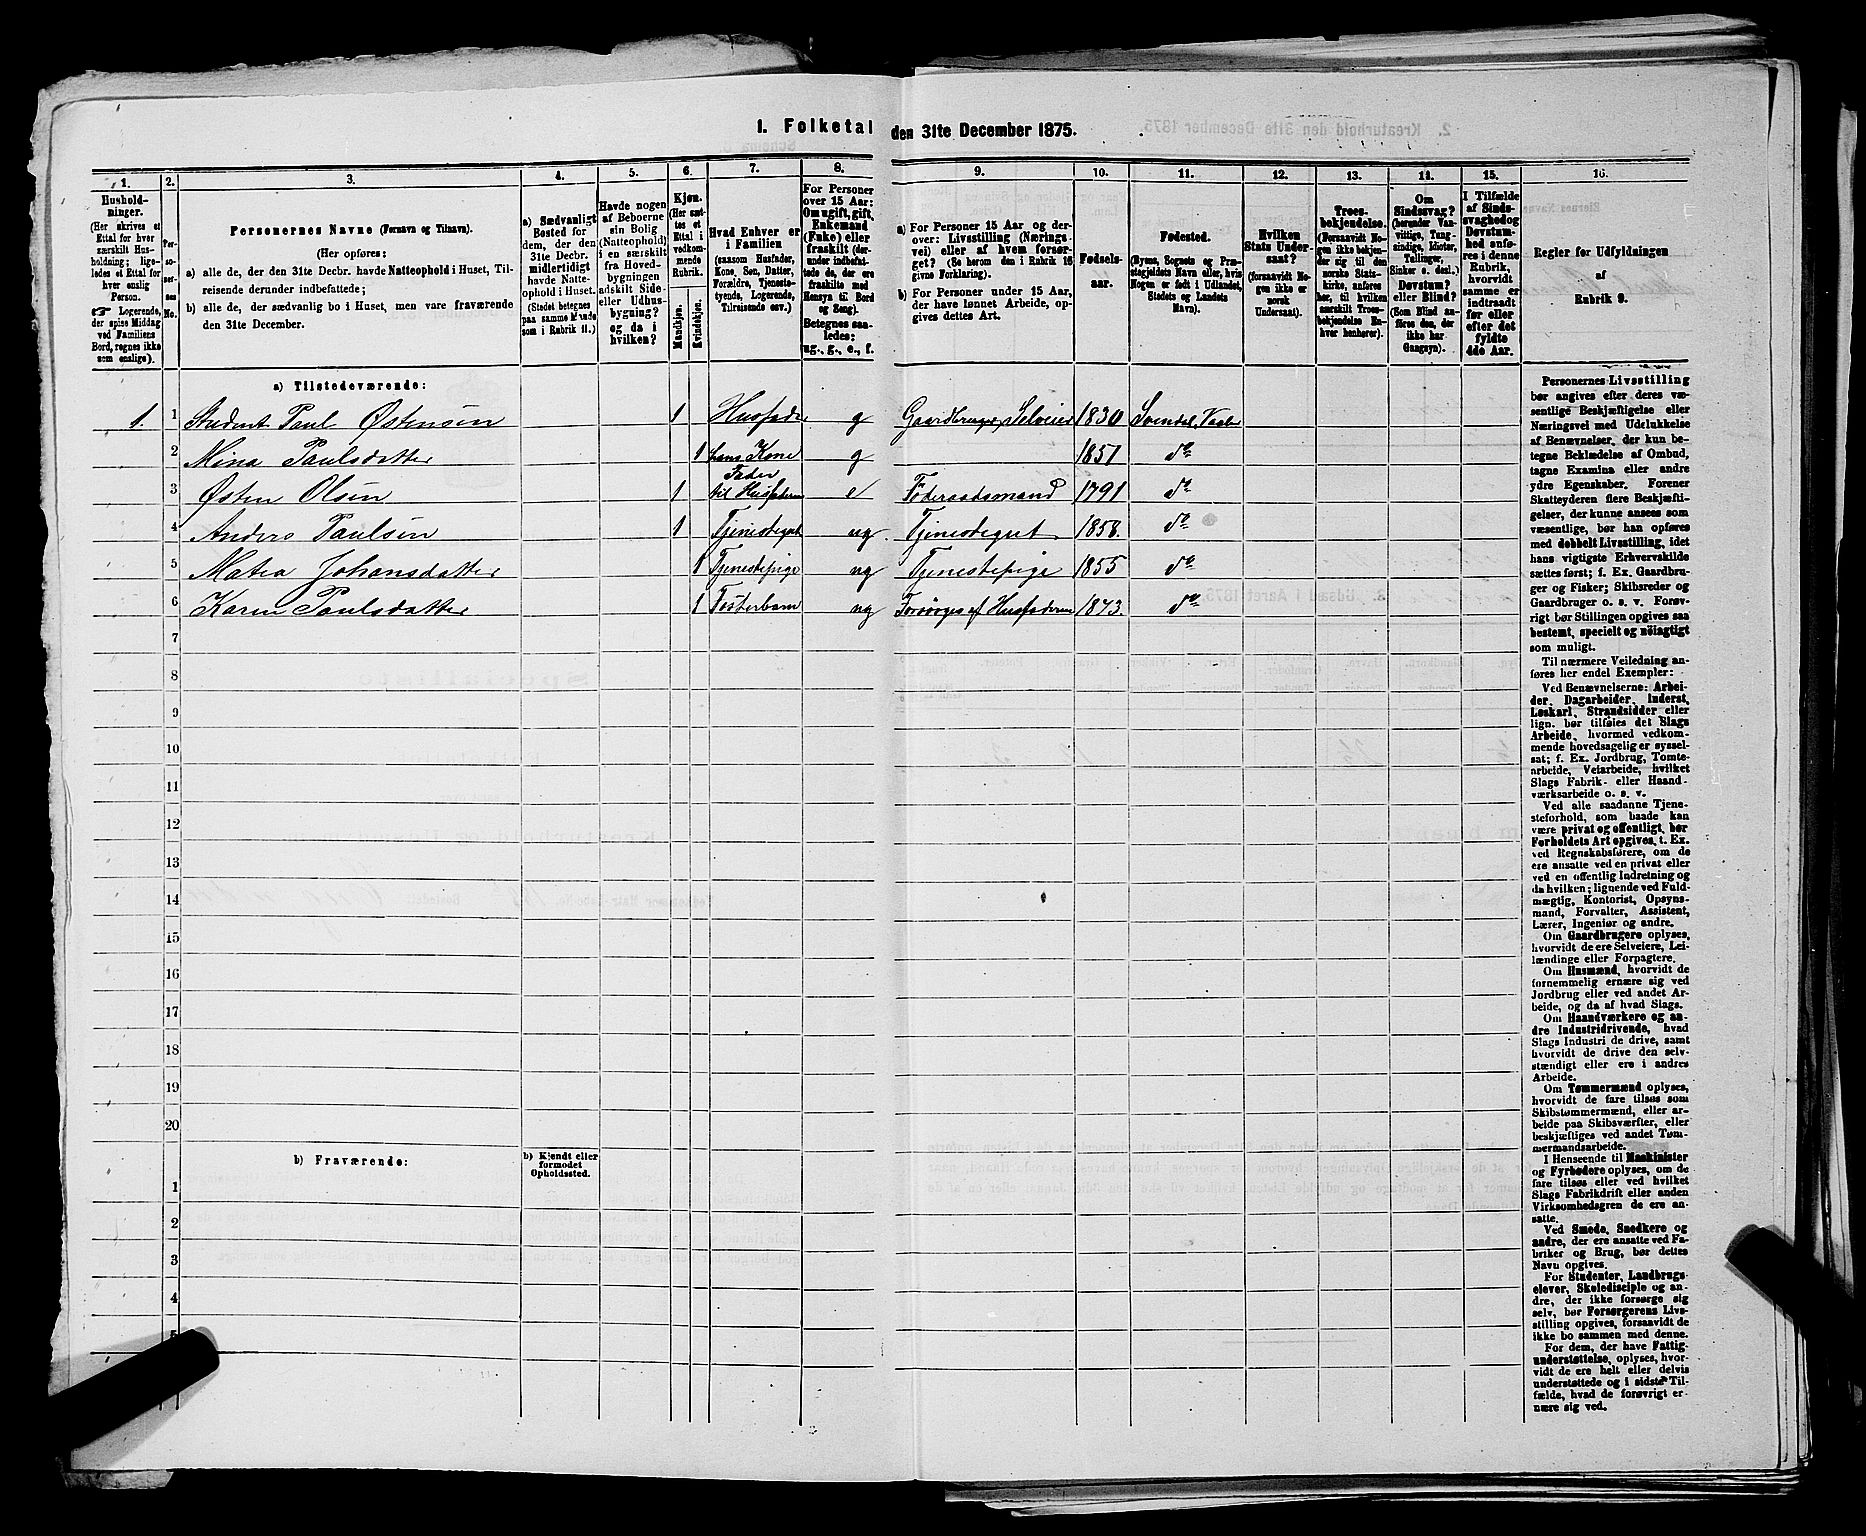 I. Folketal den 31te December 1875.
1. 2. 3. 4. 5. 6. 7. 8. 9. 10. 11. 12. 13. 14. 15. 16.
Hushold-
ninger.
(Her skrives et
Ettal for hver
særskilt Hus-
holdning; lige-
ledes et Ettal for
hver enslig
Person.
Logerende,
der spise Middag
ved Familiens
Bord, regnes ikke
som enslige).
Per-
so-
ner-
nes
No.
Personernes Navne (Fornavn og Tilnavn).
(Her opføres:
a) alle de, der den 31te Decbr. havde Natteophold i Huset, Til-
reisende derunder indbefattede;
b) alle de, der sædvanlig bo i Huset, men vare fraværende
den 31te December.
a) Sædvanligt
Bosted for
dem, der den
31te Decbr.
midlertidigt
havde Natte-
ophold i Huset.
(Stedet betegnes
paa samme Maade
som i Rubrik 11.)
Havde nogen
af Beboerne
sin Bolig
(Natteophold)
i en særskilt
fra Hoved-
bygningen
adskilt Side-
eller Udhus-
bygning?
og da i
hvilken?
Kjøn.
(Her sæt-
tes et
Ettal i
vedkom-
mende
Rubrik.
Mandkjøn.
Kvindekjøn.
Hvad Enhver er
i Familien
(saasom Husfader,
Kone, Søn, Datter,
Forældre, Tjeneste-
tyende, Logerende,
Tilreisende osv.)
For Personer
over 15 Aar:
Om ugift, gift,
Enkemand
(Enke) eller
fraskilt (der-
under indbefat-
tede de, der ere
fraskilte med
Hensyn til Bord
og Seng).
Betegnes saa-
ledes:
ug., g., e., f.
a) For Personer 15 Aar og der-
over: Livsstilling (Nærings-
vei) eller af hvem forsør-
get? (Se herom den i Rubrik 16
givne Forklaring).
b) For Personer under 15 Aar,
der have lønnet Arbeide, op-
gives dettes Art.
Fødsels-
aar.
Fødested.
(Byens, Sognets og Præ-
stegjeldets Navn eller, hvis
Nogen er født i Udlandet,
Stedets og Landets
Navn).
Hvilken
Stats Under-
saat?
(forsaavidt No-
gen ikke er
norsk
Undersaat).
Troes-
bekjendelse.
(Forsaavidt No-
gen ikke bekjen-
der sig til den
norske Stats-
kirke, anføres
her, til hvilken
særskilt Troes-
bekjendelse En-
hver henhører).
Om
Sindssvag?
(herunder Van-
vittige, Tung-
sindige, Idioter,
Tullinger,
Sinker o. desl.)
Døvstum?
eller Blind?
(Som Blind an-
føres den, der
ikke har
Gangsyn).
I Tilfælde
af Sinds-
svaghed og
Døvstum-
hed anfø-
res i denne
Rubrik,
hvorvidt
samme er
indtraadt
før eller
efter det
fyldte
4de Aar.
Regler for Udfyldningen
af
Rubrik 9.
a) Tilstedeværende:
1. 1 Student Paul Østensøn 1 Husfader g Gaardbruger, Selveier 1830 Svendal, Vaaler
2 Mina Paulsdatter 1 hans Kone g 1851 do
3 Østen Olsen 1 Fader til Husfaderen e Føderaadsmand 1791 do
4 Anders Paulsen 1 Tjenestegut ug. Tjenestegut 1858. do
5 Matea Johansdatter 1 Tjenestepige ug Tjenestepige 1855 do
6 Karen Paulsdatter 1 Fosterbarn ug Forsørges af Husfaderen 1873. do
7
8
9
10
11
12
13
14
15
16
17
18
19
20
b) Fraværende:
b) Kjendt eller
formodet
Opholdssted.
1
2
3
4
5
Personernes Livsstilling
bør angives efter deres væ-
sentlige Beskjæftigelse eller
Næringsvei med Udelukkelse
af Benævnelser, der kun be-
tegne Beklædelse af Ombud,
tagne Examina eller andre
ydre Egenskaber. Forener
Skatteyderen flere Beskjæfti-
gelser, der kunne ansees som
væsentlige, bør han opføres
med dobbelt Livsstilling, idet
hans vigtigste Erhvervskilde
sættes først; f. Ex. Gaardbru-
ger og Fisker; Skibsreder og
Gaardbruger o. s. v. Forøv-
rigt bør Stillingen opgives saa
bestemt, specielt og nöiagtigt
som muligt.
Til nærmere Veiledning an-
føres her endel Exempler:
Ved Benævnelserne: Arbei-
der, Dagarbeider, Inderst,
Løskarl, Strandsidder eller
lign. bør tilføies det Slags
Arbeide, hvormed vedkom-
mende hovedsagelig er syssel-
sat; f. Ex. Jordbrug, Tomte-
arbeide, Veiarbeide, hvilket
Slags Fabrik- eller Haand-
værksarbeide o. s. v.
Ved alle saadanne Tjene-
steforhold, som baade kan
være privat og offentligt, bør
Forholdets Art opgives, t. Ex.
ved Regnskabsførere, om de
ere ansatte ved en privat eller
ved en offentlig Indretning og
da hvilken; lignende ved Fuld-
mægtig, Kontorist, Opsyns-
mand, Forvalter, Assistent,
Lærer, Ingeniør og andre.
Om Gaardbrugere oplyses,
hvorvidt de ere Selveiere, Lei-
lændinge eller Forpagtere.
Om Husmænd, hvorvidt de
fornemmelig ernære sig ved
Jordbrug eller ved andet Ar-
beide, og da af hvad Slags.
Om Haandværkere og an-
dre Industridrivende, hvad
Slags Industri de drive, samt
hvorvidt de drive den selv-
stændigt eller ere i andres
Arbeide.
Om Tømmermænd oplyses,
hvorvidt de fare tilsøs som
Skibstømmermænd, eller ar-
beide paa Skibsværfter, eller
beskjæftiges ved andet Tøm-
mermandsarbeide.
I Henseende til Maskinister
og Fyrbødere oplyses, om de
fare tilsøs eller ved hvilket
Slags Fabrikdrift eller anden
Virksomhedsgren de ere an-
satte.
Ved Smede, Snedkere og
andre, der ere ansatte ved Fa-
briker og Brug, bør dettes
Navn opgives.
For Studenter, Landbrugs-
elever, Skoledisciple og an-
dre, der ikke forsørge sig
selv, bør Forsørgerens Livs-
stilling opgives, forsaavidt de
ikke bo sammen med denne.
For dem, der have Fattig-
understøttelse, oplyses, hvor-
vidt de ere helt eller delvis
understøttede og i sidste Til-
fælde, hvad de forøvrigt er-
nære sig ved.